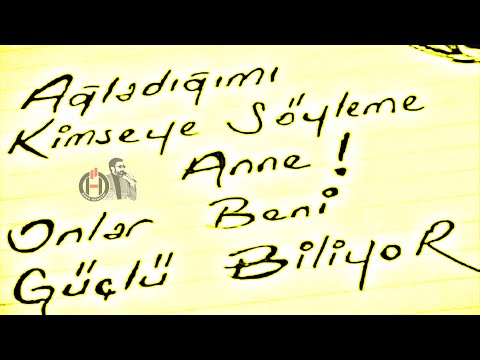 Ağladığımı
Kimseye Söyleme
Anne!
Onlar Beni
Güçlü BiliyoR